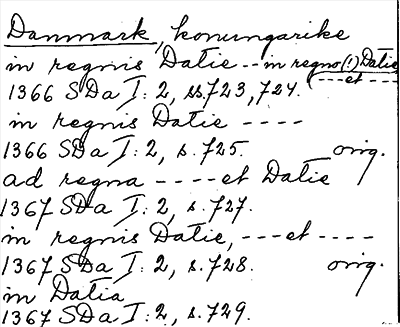 Danmark, konungarike
in regnis Datie -- in regno (!) Datie
---- et ----
1366 SDa I: 2, ss. 723, 724.
in regnis Datie ----
1366 SDa I: 2, s. 725. orig.
ad regna ---- et Datie
1367 SDa I: 2, s. 727.
in regnis Datie, --- et ----
1367 SDa I: 2, s. 728. orig.
in Datia
1367 SDa I: 2, s. 729.